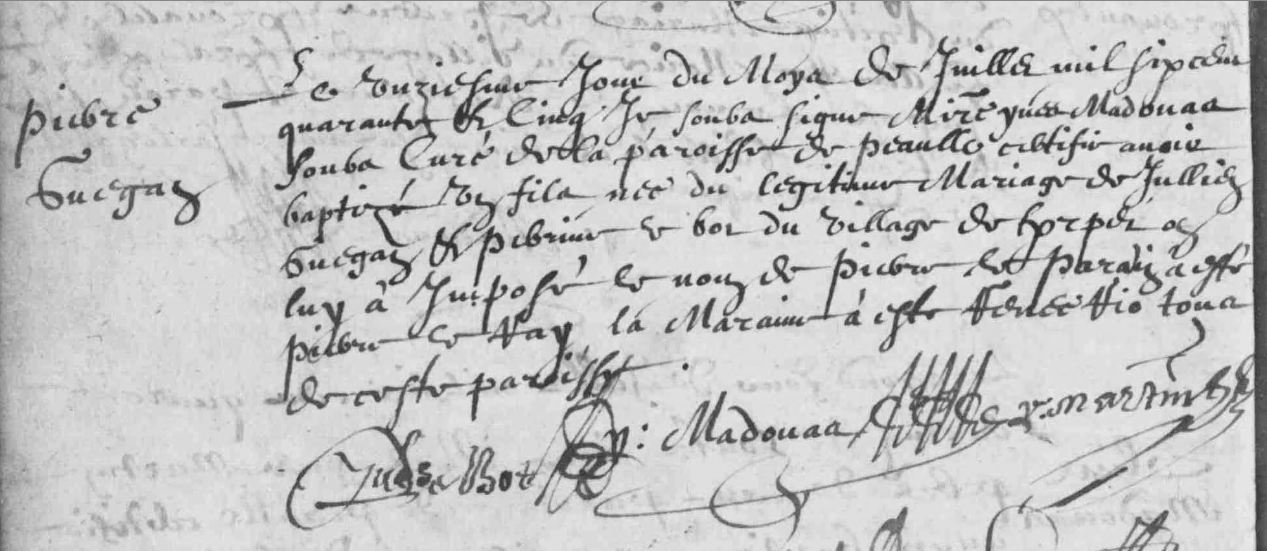 Pierre
Guegan
Le unziesme Jour du Moys de Juillet mil six cent
quarante & Cinq Je soubs signe Mire yves Madouas
soubs Curé de la paroisse de Peaulle certifie avoir
baptizé un fils nee du legitime Mariage de Jullien
Guegan & Perrine le bot du village de on
luy à Imposé le nom de Pierre le Parain à esté
Pierre le Ray la Maraine à esté tous
de ceste paroisse
Y: Madouas
Yves le Bot